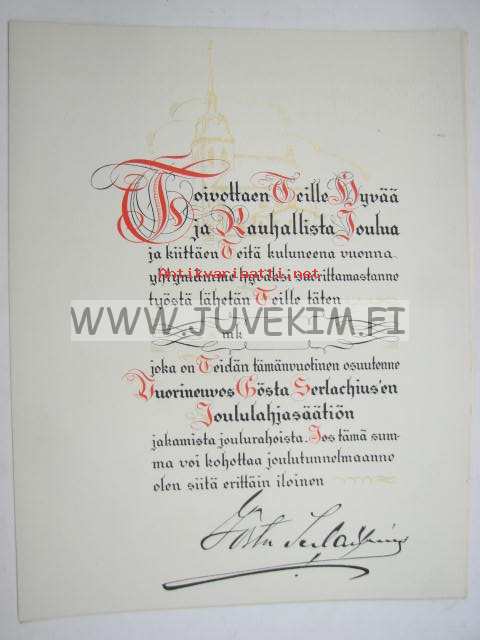 Toivottaen Teille Hyvää
ja Rauhallista Joulua
ja kiittäen Teitä kuluneena vuonna
yhtymämme hyväksi suorittamastanne
Antikvariaatti.net
työstä lähetän Teille täten
WWW.JUVEKIM.FI
mk
joka on Teidän tämänvuotinen osuutenne
Vuorineuvos Gösta Serlachius'en
Joululahjasäätiön
jakamista joulurahoista. Jos tämä sum-
ma voi kohottaa joulutunnelmaanne
olen siitä erittäin iloinen
Gösta Serlachius